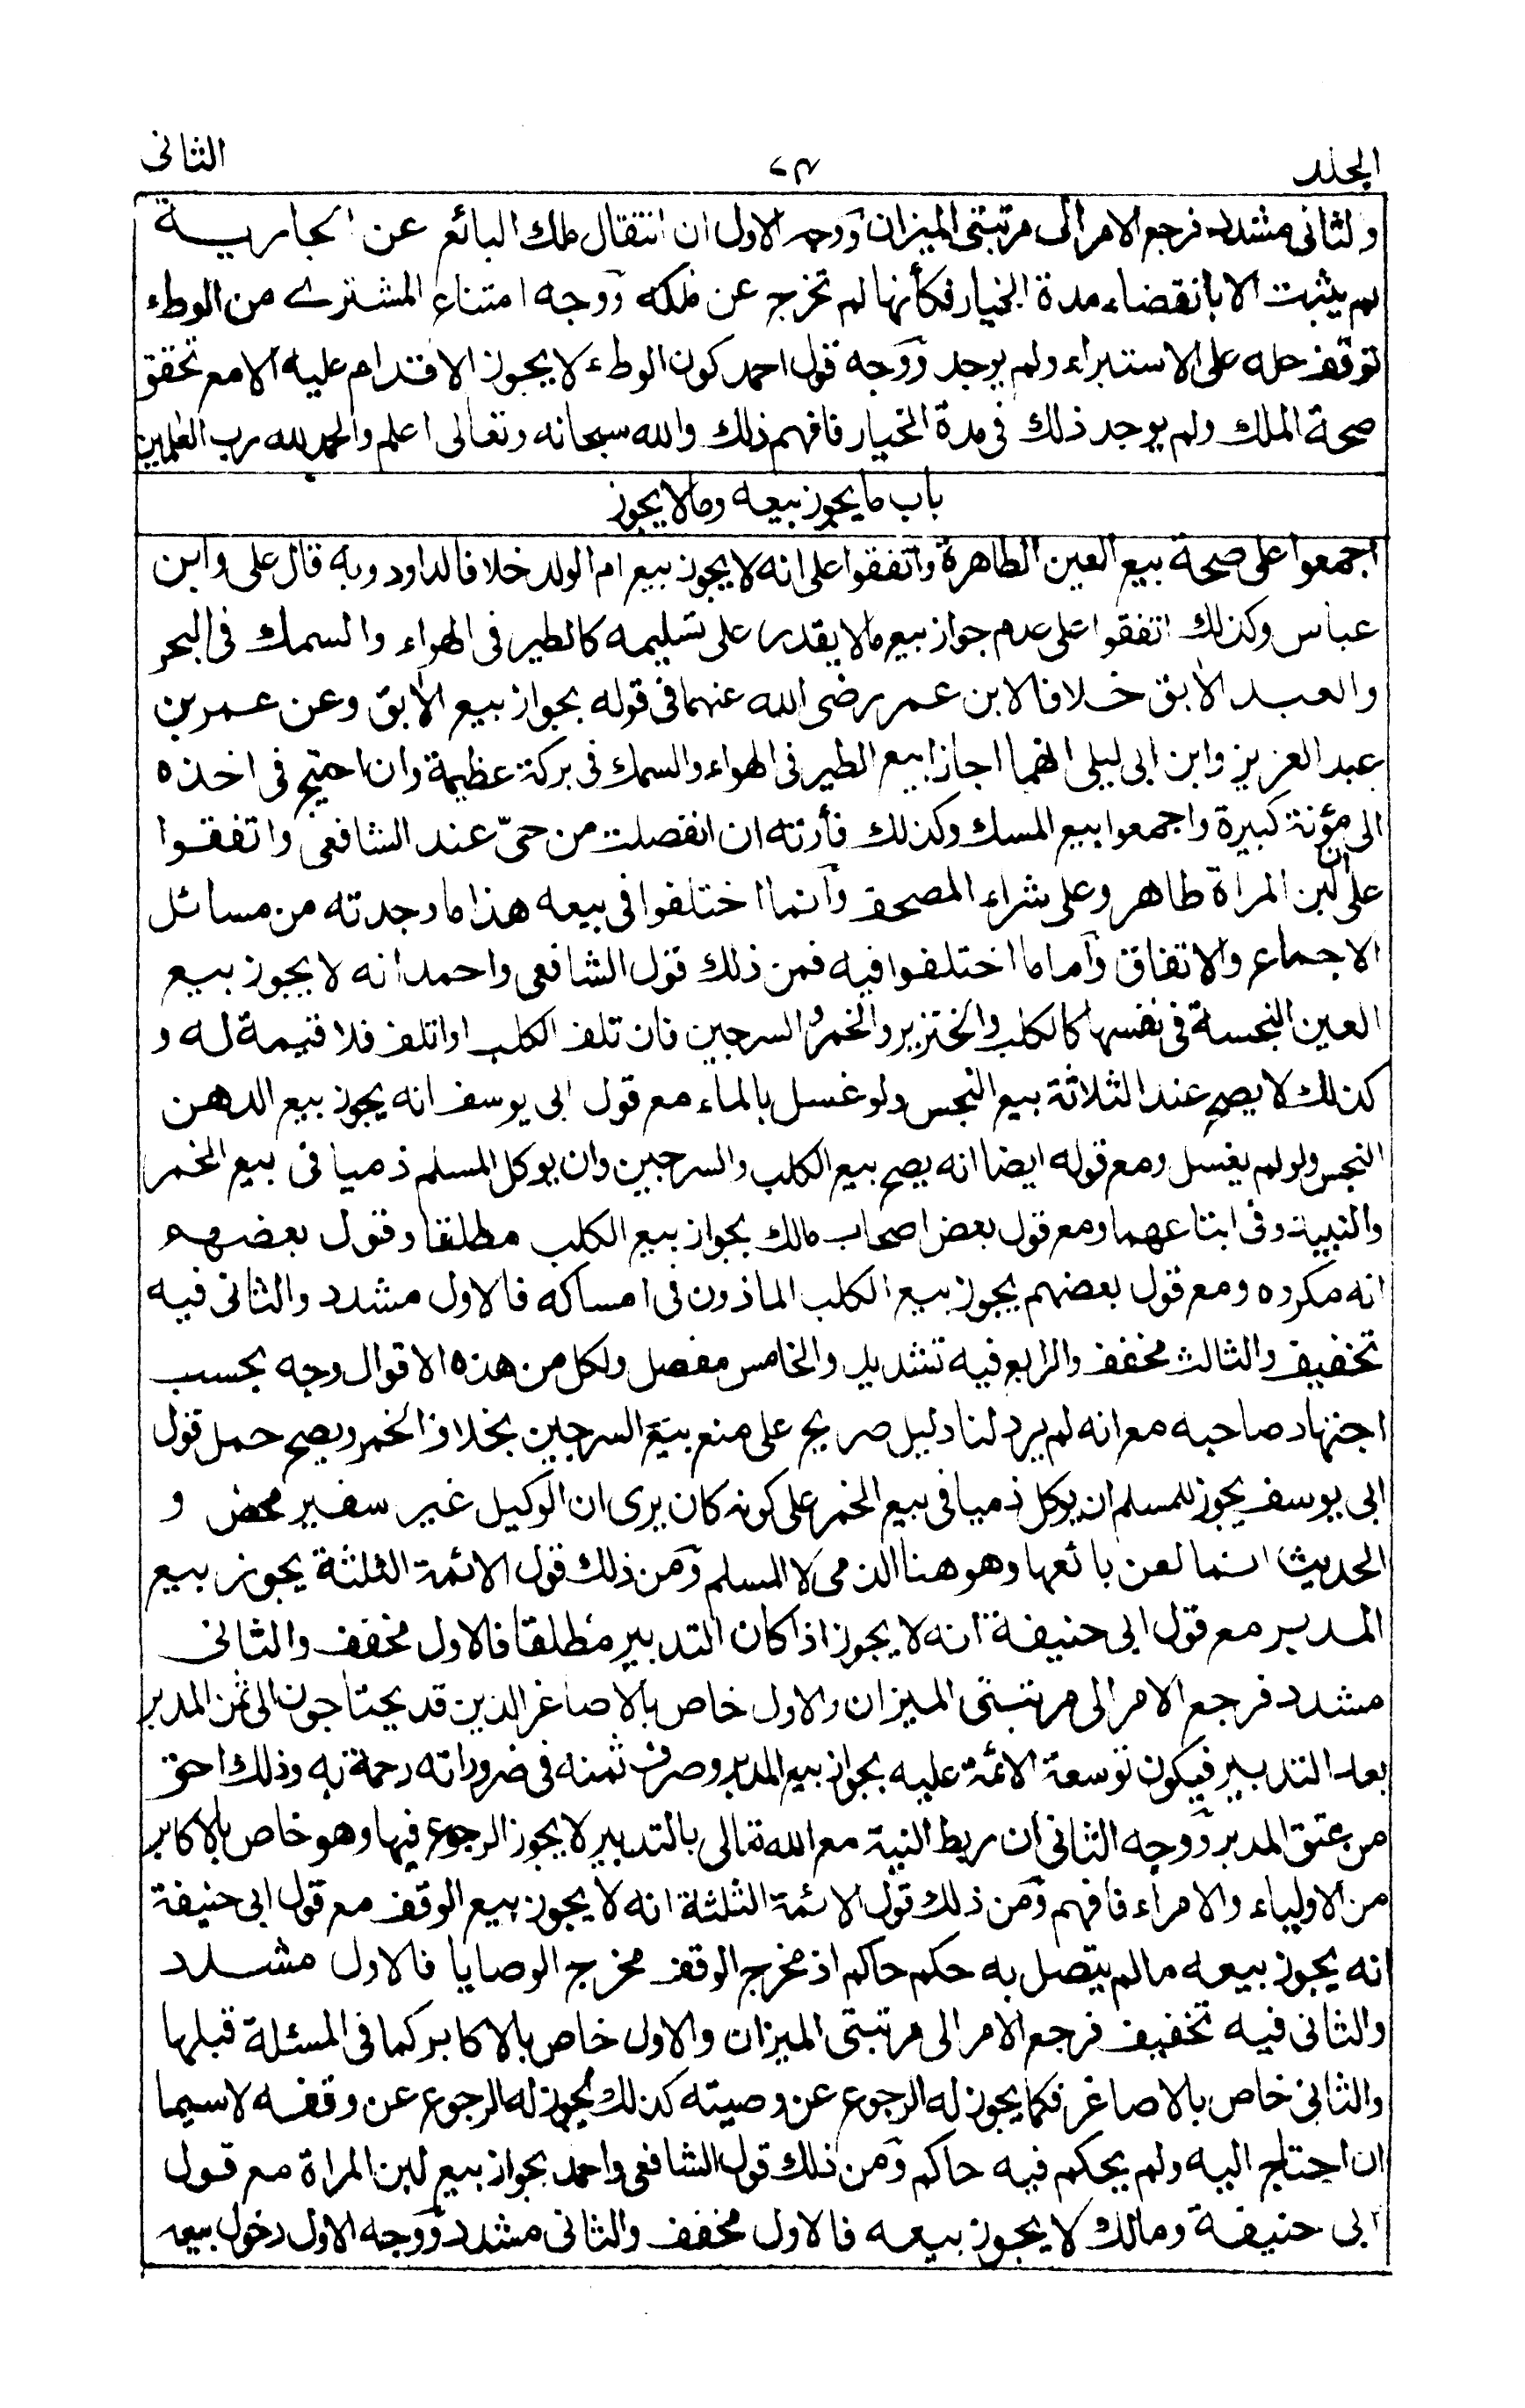 الجلد ٧٣ الثانى
والثانى مشدد فرجع الامر الى مرتبتى الميزان ووجه الاول ان انتقال ملك البائع عن الجارية
لم يثبت الا بانقضاء مدة الخيار فكأنها لم تخرج عن ملكه ووجه امتناع المشترى من الوطء
توقف حله على الاستبراء ولم يوجد ووجه قول احمد كون الوطء لا يجوز الاقدام عليه الا مع تحقق
صحة الملك ولم يوجد ذلك فى مدة الخيار فافهم ذلك والله سبحانه وتعالى اعلم والحمد لله رب العلمين
باب ما يجوز بيعه وما لا يجوز
اجمعوا على صحة بيع العين الطاهرة واتفقوا على انه لا يجوز بيع ام الولد خلافا لداود وبه قال على وابن
عباس وكذلك اتفقوا على عدم جواز بيع مالا يقدر على تسليمه كالطير فى الهواء والسمك فى البحر
والعبد الابق خلافا لابن عمر رضى الله عنهما فى قوله بجواز بيع الابق وعن عمر بن
عبد العزيز وابن ابى ليلى انهما اجازا بيع الطير فى الهواء والسمك فى بركة عظيمة وان احتيج فى اخذه
الى مؤنة كبيرة واجمعوا بيع المسك وكذلك فأرته ان انفصلت من حىّ عند الشافعى واتفقوا
على ان لبن المراة طاهر وعلى شراء المصحف وانما اختلفوا فى بيعه هذا ما وجدته من مسائل
الاجماع والاتفاق واما ما اختلفوا فيه فمن ذلك قول الشافعى واحمد انه لا يجوز بيع
العين النجسة فى نفسها كالكلب والخنزير والخمر والسرجين فان تلف الكلب او اتلف فلا قيمة له و
كذلك لا يصح عند الثلاثة بيع النجس ولو غسل بالماء مع قول ابى يوسف انه يجوز بيع الدهن
النجس ولو لم يغسل ومع قوله ايضا انه يصح بيع الكلب والسرجين وان يوكل المسلم ذميا فى بيع الخمر
والنبيذ وفى ابتاعهما ومع قول بعض اصحاب مالك بجواز بيع الكلب مطلقا وقول بعضهم
انه مكروه ومع قول بعضهم يجوز بيع الكلب الماذون فى امساكه فالاول مشدد والثانى فيه
تخفيف والثالث مخفف والرابع فيه تشديد والخامس مفصل ولكل من هذه الاقوال وجه بحسب
اجتهاد صاحبه مع انه لم يرد لنا دليل صريح على منع بيع السرجين بخلاف الخمر ويصح حمل قول
ابى يوسف يجوز للمسلم ان يوكل ذميا فى بيع الخمر على كونه كان يرى ان الوكيل غير سفير محض و
الحديث انما لعن بائعها وهو هنا الذمى لا المسلم ومن ذلك قول الائمة الثلثة يجوز بيع
المدبر مع قول ابى حنيفة انه لا يجوز اذا كان التدبير مطلقا فالاول مخفف والثانى
مشدد فرجع الامر الى مرتبتى الميزان والاول خاص بالاصاغر الذين قد يحتاجون الى ثمن المدبر
بعد التدبير فيكون توسعة الائمة عليه بجواز بيع المدبر وصرف ثمنه فى ضروراته رحمة به وذلك احق
من عتق المدبر ووجه الثانى ان ربط النية مع الله تعالى بالتدبير لا يجوز الرجوع فيها وهو خاص بالاكابر
من الاولياء والامراء فافهم ومن ذلك قول الائمة الثلثة انه لا يجوز بيع الوقف مع قول ابى حنيفة
انه يجوز بيعه مالم يتصل به حكم حاكم اذ مخرج الوقف مخرج الوصايا فالاول مشدد
والثانى فيه تخفيف فرجع الامر الى مرتبتى الميزان والاول خاص بالاكابر كما فى المسئلة قبلها
والثانى خاص بالاصاغر فكما يجوز له الرجوع عن وصيته كذلك يجوز له الرجوع عن وقفه لاسيما
ان احتاج اليه ولم يحكم فيه حاكم ومن ذلك قول الشافعى واحمد بجواز بيع لبن المراة مع قول
ابى حنيفة ومالك لا يجوز بيعه فالاول مخفف والثانى مشدد ووجه الاول دخول بيعه